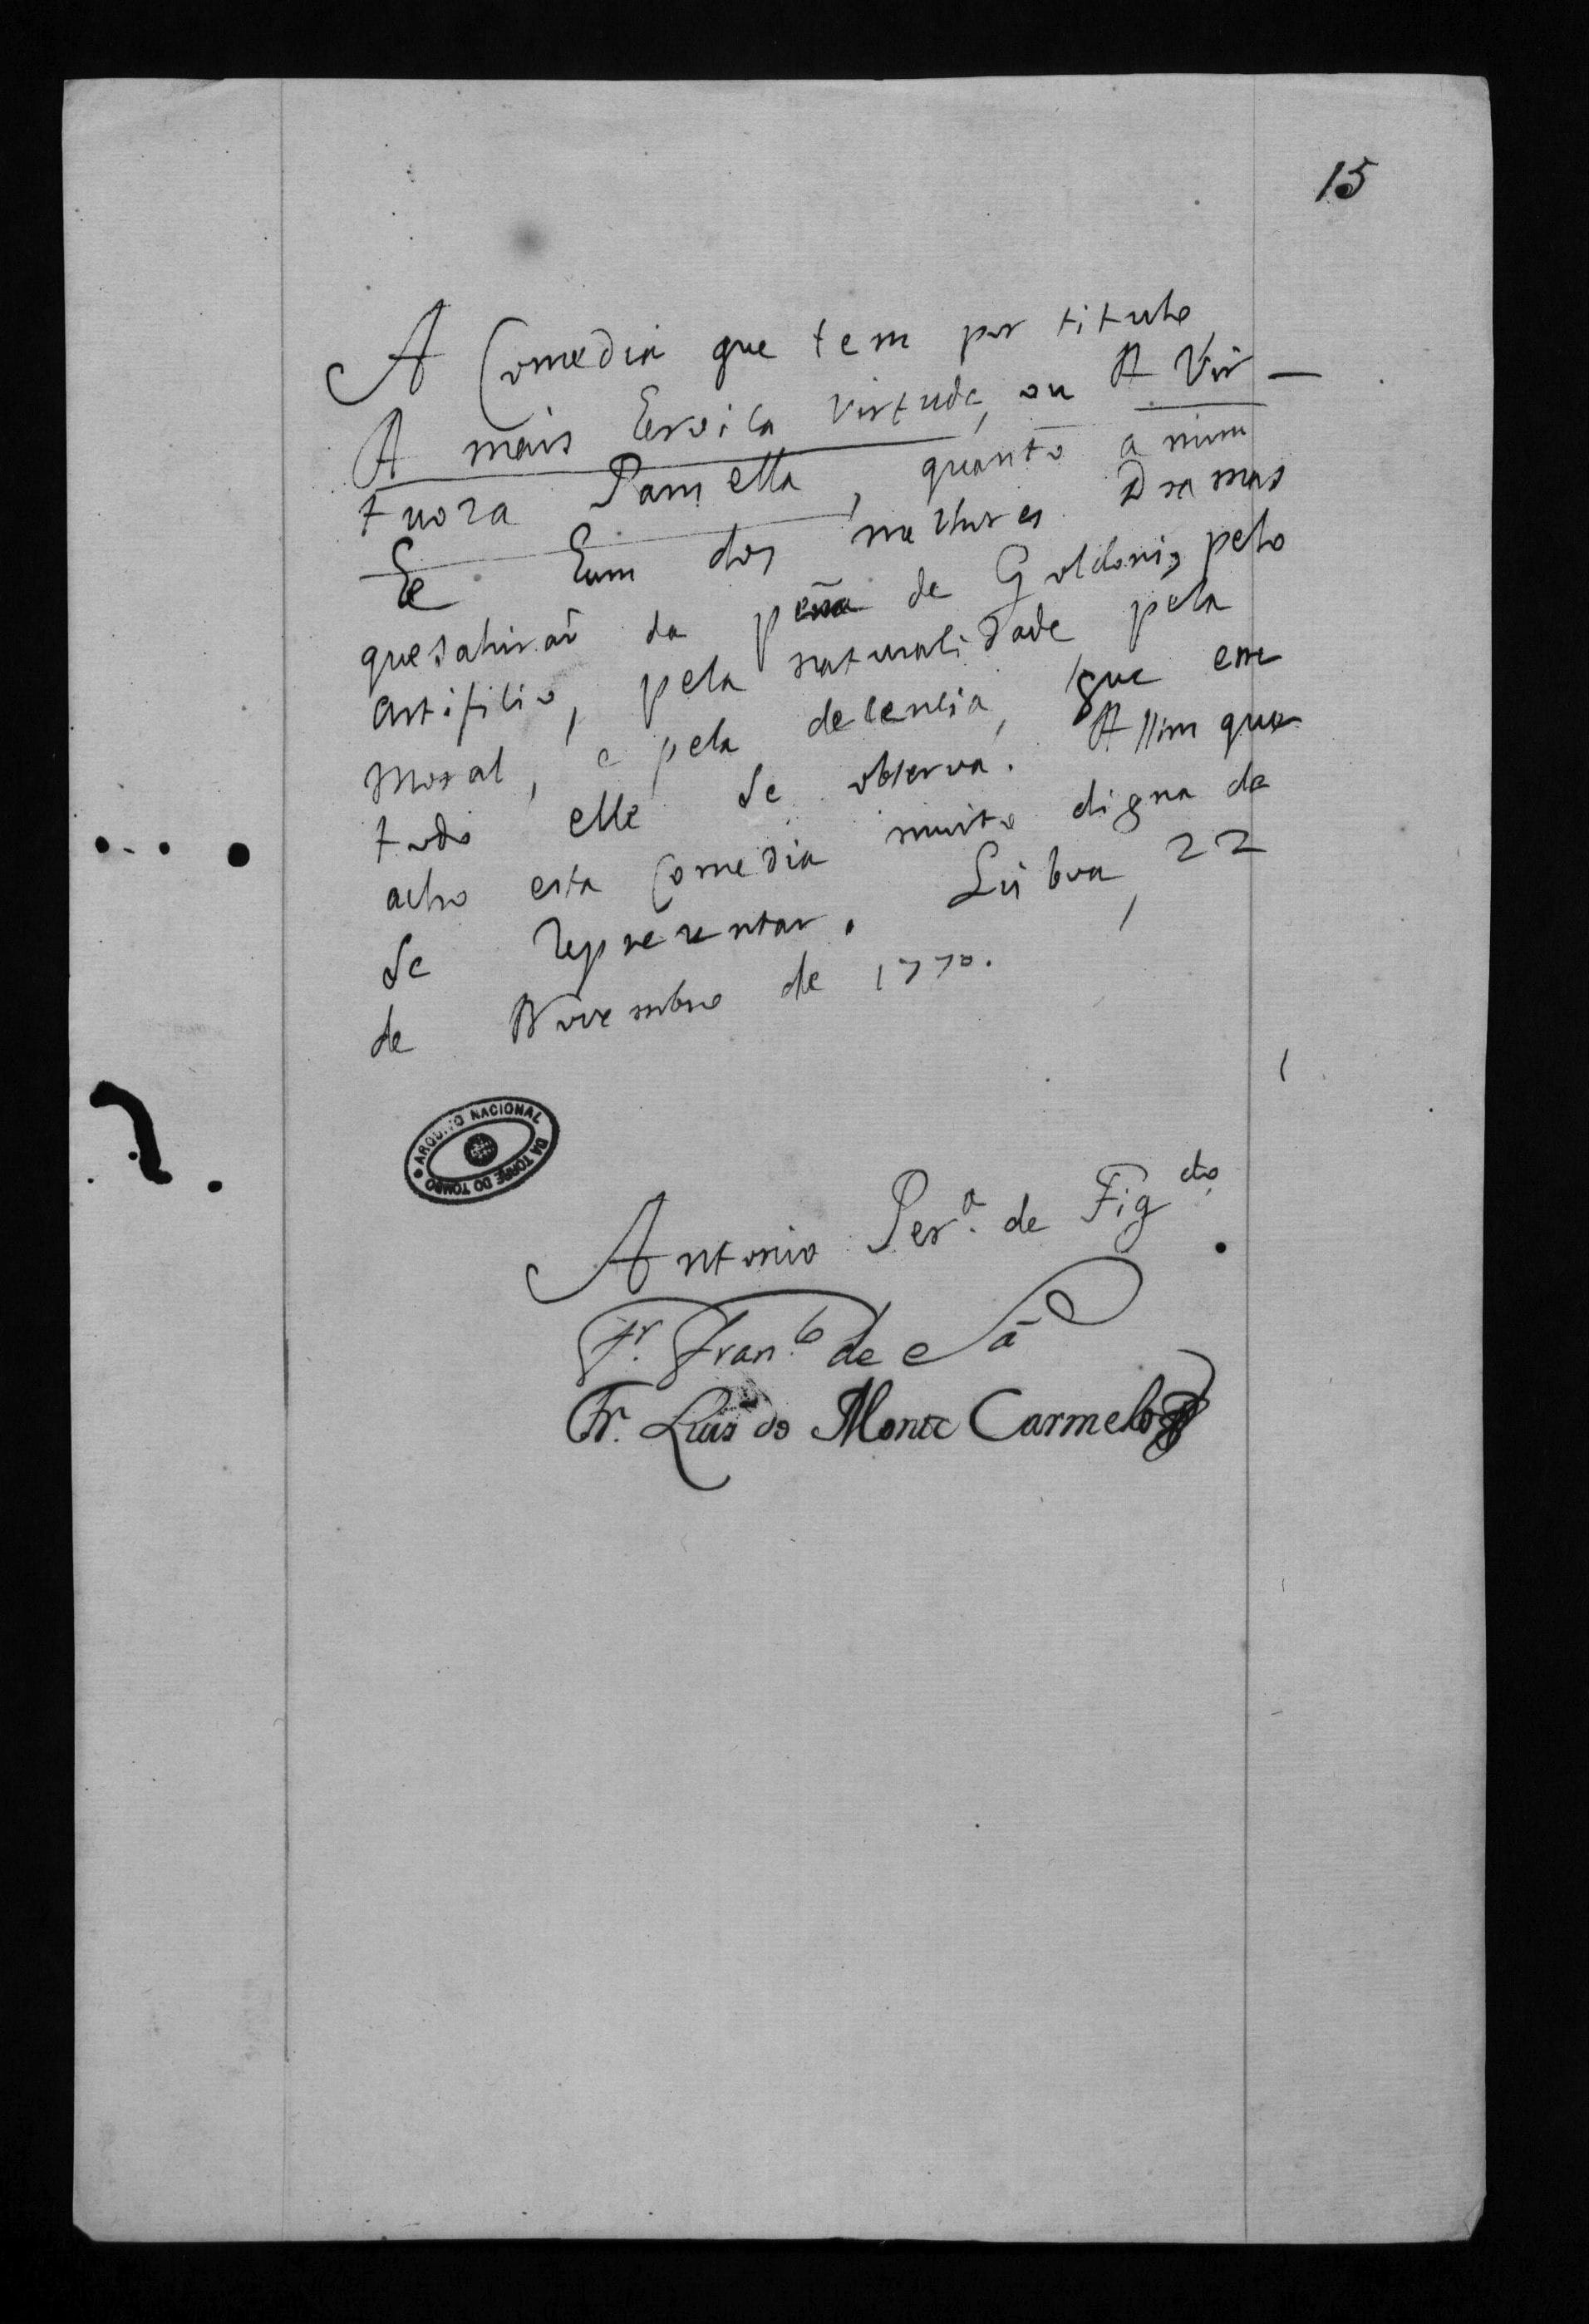 15
A Comedia que tem por titulo
A mais heroica virtude, ou A Vir-
tuoza Pamella, quanto a mim
he hum dos milhores Dramas
que sahiraõ da pena de Goldoni, pelo
artificio, pela naturalidade pela
moral, e pela decencia, que em
todo elle se observa. Assim que
acho esta Comedia muito digna de
se representar. Lisboa, 22
de Novembro de 1770.
ARQUIVO NACIONAL DA TORRE DO TOMBO
Antonio Per.ª de Fig.do
Fr. Fran.co de Sá
Fr. Luis do Monte Carmelo